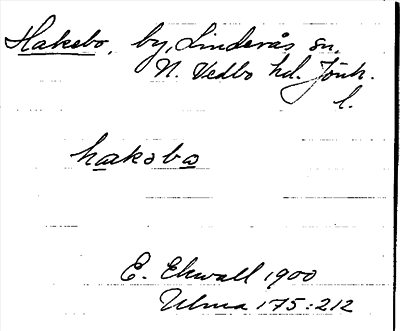 Hakebo, by, Linderås sn.
N. Vedbo hd. Jönk.
l.
hakəba
E. Ekwall 1900
Ulma 175:212